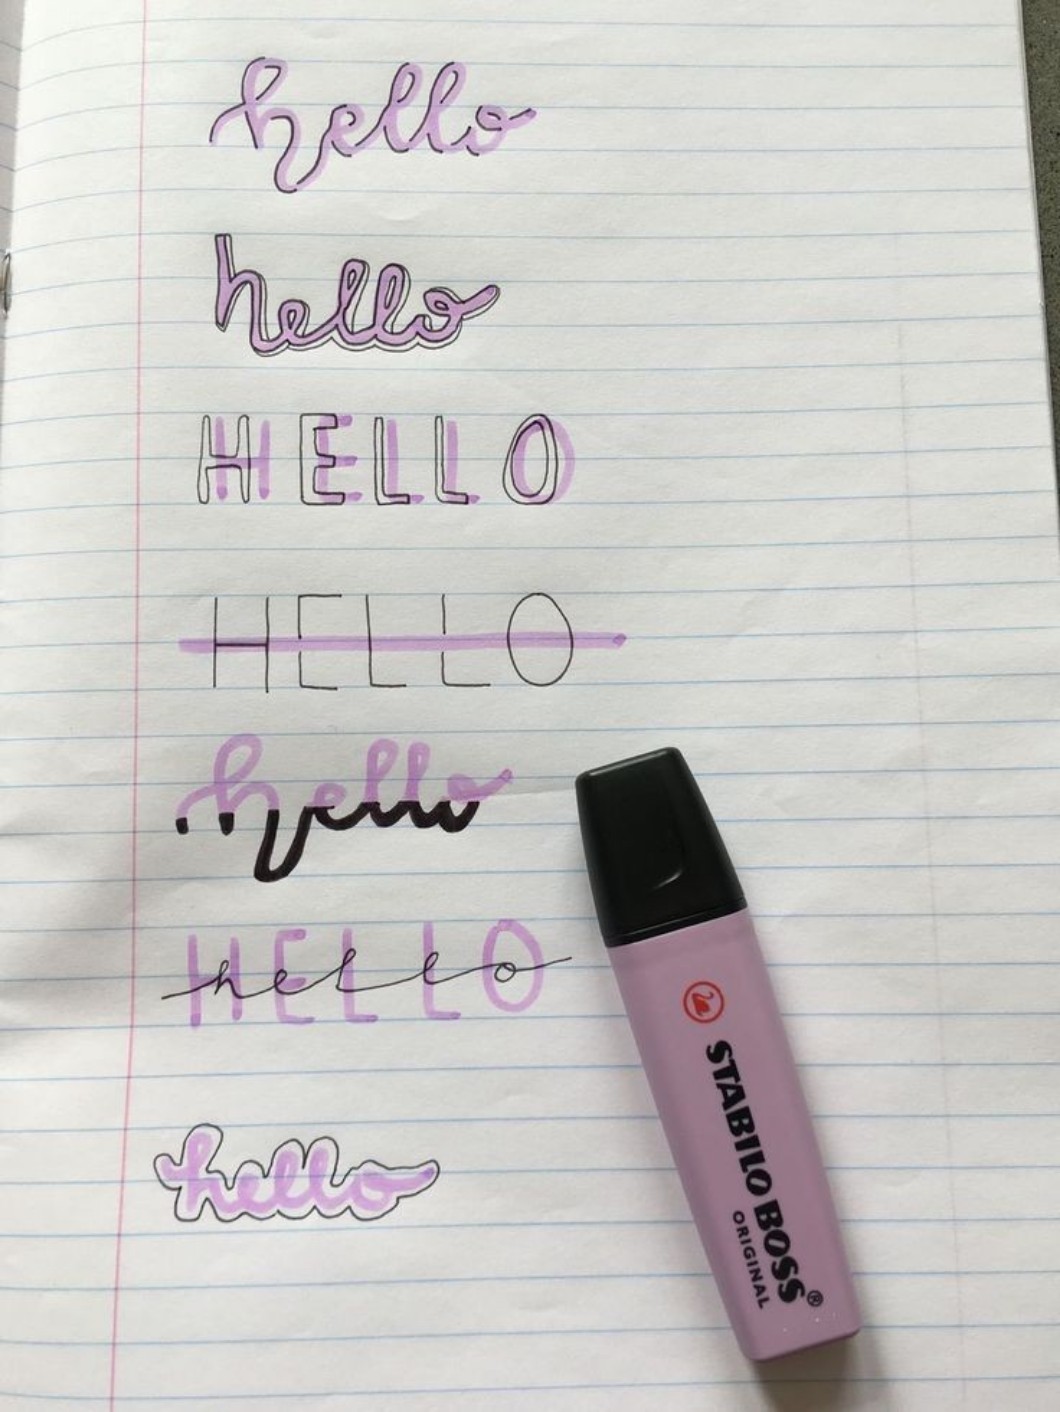 hello
hello
HELLO
HELLO
hello
HELLO
hello
hello
STABILO BOSS®
ORIGINAL